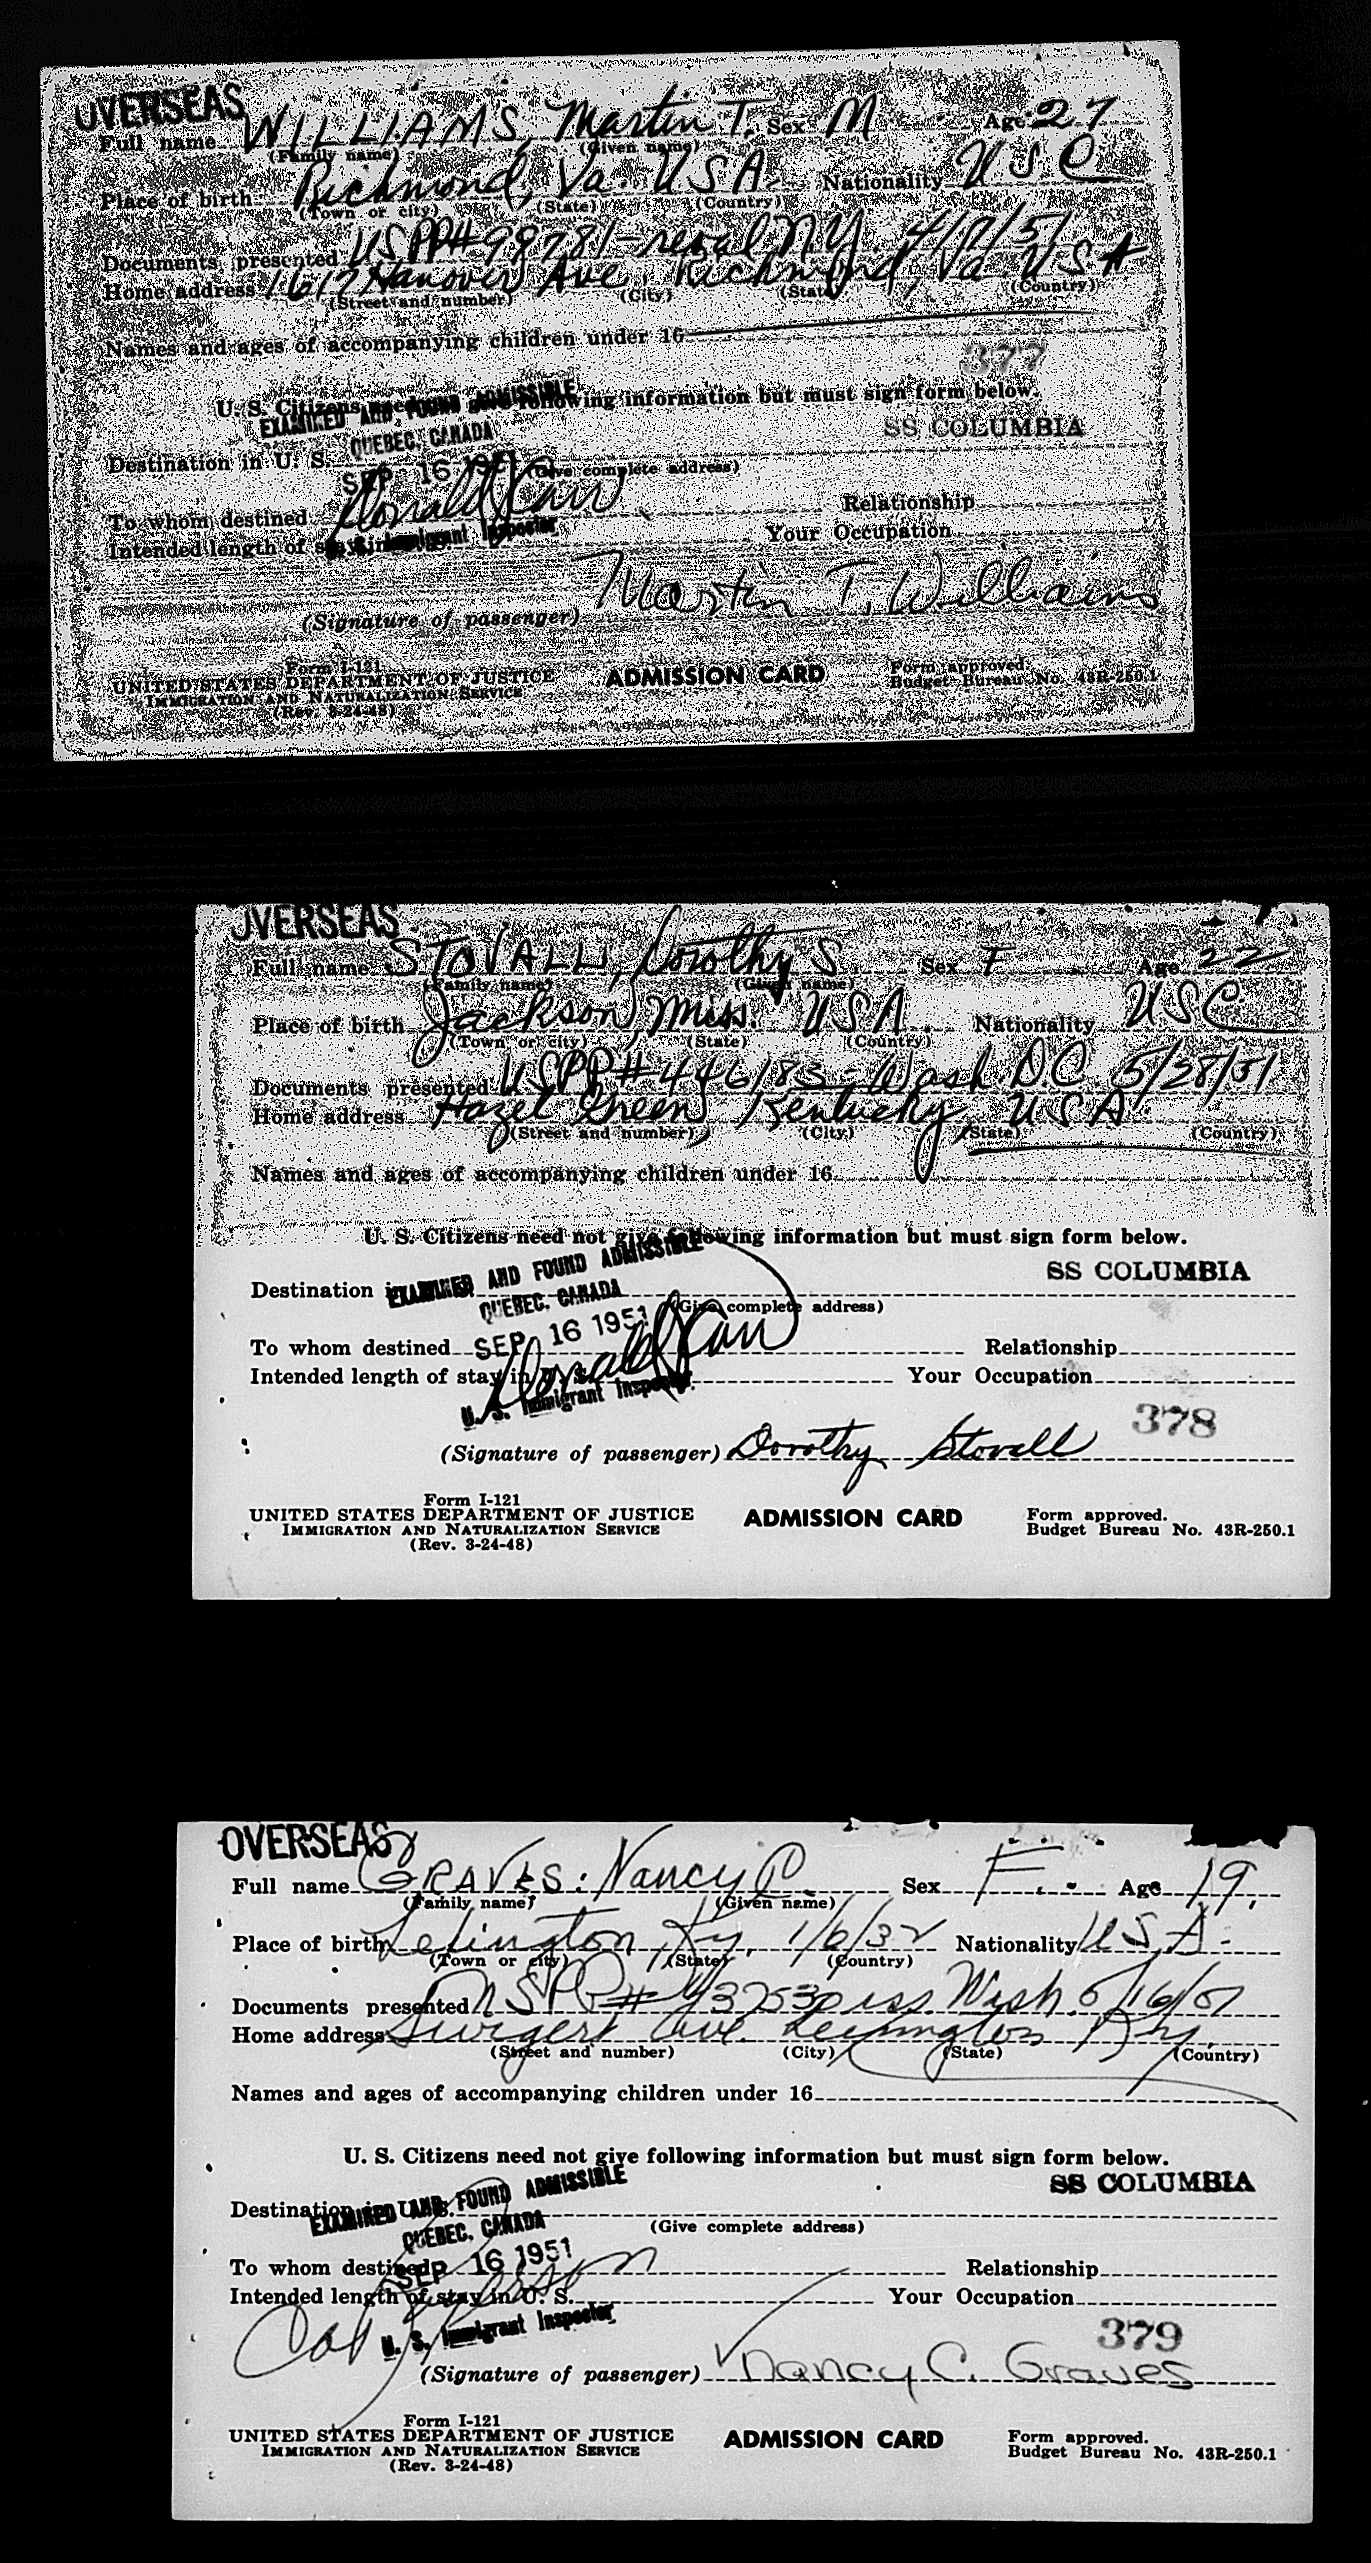 OVERSEAS
Full name WILLIAMS, Martin T. Sex M Age 27
(Family name) (Given name)
Place of birth Richmond, Va. USA Nationality USC
(Town or city) (State) (Country)
Documents presented USPP# 99781 - N.Y. 4/9/51
Home address 1617 Hanover Ave, Richmond, Va USA
(Street and number) (City) (State) (Country)
Names and ages of accompanying children under 16
377
U. S. Citizens need not give following information but must sign form below.
EXAMINED AND FOUND ADMISSIBLE
SS COLUMBIA
QUEBEC, CANADA
Destination in U. S.
(Give complete address)
SEP 16 1951
To whom destined Relationship
Intended length of stay in Your Occupation
U. S. Immigrant Inspector
Martin T. Williams
(Signature of passenger)
Form I-121
UNITED STATES DEPARTMENT OF JUSTICE
IMMIGRATION AND NATURALIZATION SERVICE
(Rev. 3-24-48)
ADMISSION CARD
Form approved.
Budget Bureau No. 43R-250.1
OVERSEAS
Full name STOVALL, Dorothy S. Sex F Age 22
(Family name) (Given name)
Place of birth Jackson, Miss. USA. Nationality USC
(Town or city) (State) (Country)
Documents presented USPP# 446183 - Wash. D.C. 5/28/51
Home address Hazel Green, Kentucky, USA
(Street and number) (City) (State) (Country)
Names and ages of accompanying children under 16
U. S. Citizens need not give following information but must sign form below.
EXAMINED AND FOUND ADMISSIBLE
SS COLUMBIA
Destination in
QUEBEC, CANADA
(Give complete address)
SEP 16 1951
To whom destined Relationship
Intended length of stay in U. S. Your Occupation
U. S. Immigrant Inspector
378
(Signature of passenger) Dorothy Stovall
Form I-121
UNITED STATES DEPARTMENT OF JUSTICE
IMMIGRATION AND NATURALIZATION SERVICE
(Rev. 3-24-48)
ADMISSION CARD
Form approved.
Budget Bureau No. 43R-250.1
OVERSEAS
Full name GRAVES: Nancy C. Sex F. Age 19.
(Family name) (Given name)
Place of birth Lexington, Ky, 1/6/32 Nationality U.S.A.
(Town or city) (State) (Country)
Documents presented USPP# iss. Wash. 5/16/51
Home address Swigert Ave. Lexington Ky.
(Street and number) (City) (State) (Country)
Names and ages of accompanying children under 16
U. S. Citizens need not give following information but must sign form below.
SS COLUMBIA
EXAMINED AND FOUND ADMISSIBLE
Destination in U. S.
QUEBEC, CANADA
(Give complete address)
SEP 16 1951
To whom destined Relationship
Intended length of stay in U. S. Your Occupation
U. S. Immigrant Inspector
379
(Signature of passenger) Nancy C. Graves
Form I-121
UNITED STATES DEPARTMENT OF JUSTICE
IMMIGRATION AND NATURALIZATION SERVICE
(Rev. 3-24-48)
ADMISSION CARD
Form approved.
Budget Bureau No. 43R-250.1